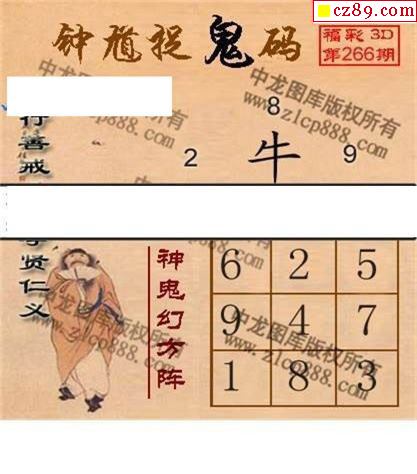 cz89.com
钟馗捉鬼码
福彩3D
第266期
中龙图库版权所有
www.zlcp888.com
行善戒
8
2 牛 9
贤仁义
神鬼幻方阵
6 2 5
9 4 7
1 8 3
中龙图库版权所有
www.zlcp888.com